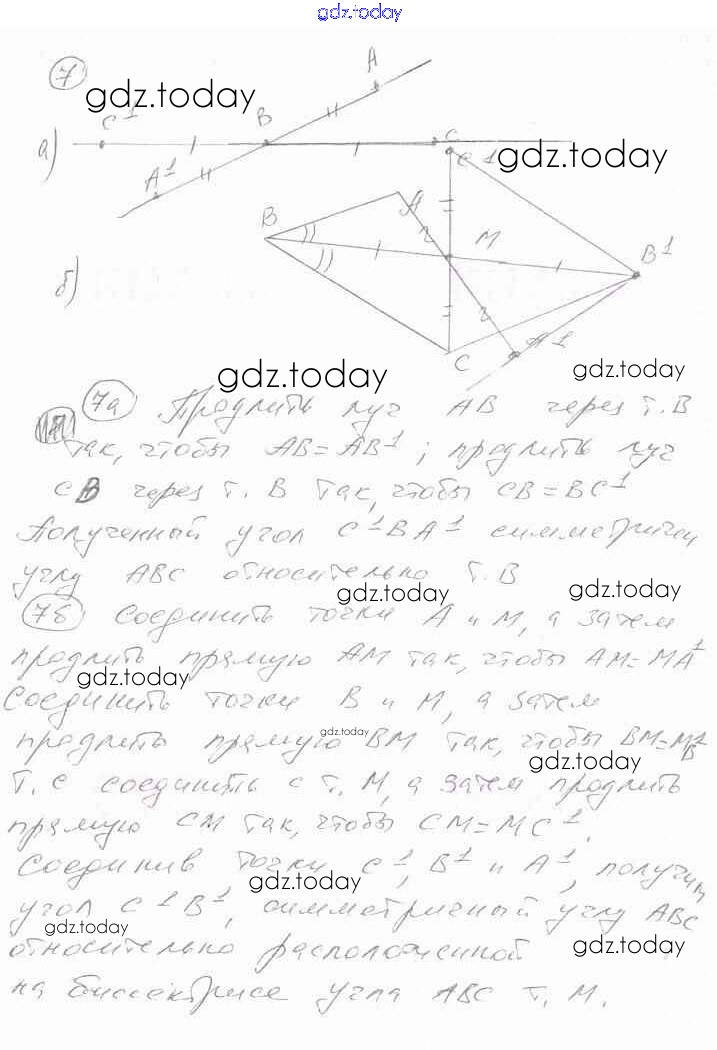 gdz.today
7
A
gdz.today
C¹ B C
а)
C¹ gdz.today
A¹
A
B M B¹
б)
C A¹
gdz.today gdz.today
7а Продлить луч AB через т. B
так, чтобы AB = AB¹; продлить луч
CB через т. B так, чтобы CB = BC¹
Полученный угол C¹BA¹ симметричен
углу ABC относительно т. B
gdz.today gdz.today
7б Соединить точки A и M, а затем
продлить прямую AM так, чтобы AM = MA¹
gdz.today
Соединить точки B и M, а затем
gdz.today
продлить прямую BM так, чтобы BM = MB¹
gdz.today
т. C соединить с т. M, а затем продлить
прямую CM так, чтобы CM = MC¹.
Соединив точки C¹, B¹ и A¹, получим
gdz.today
угол C¹B¹, симметричный углу ABC
gdz.today
относительно расположенной
gdz.today
на биссектрисе угла ABC т. M.